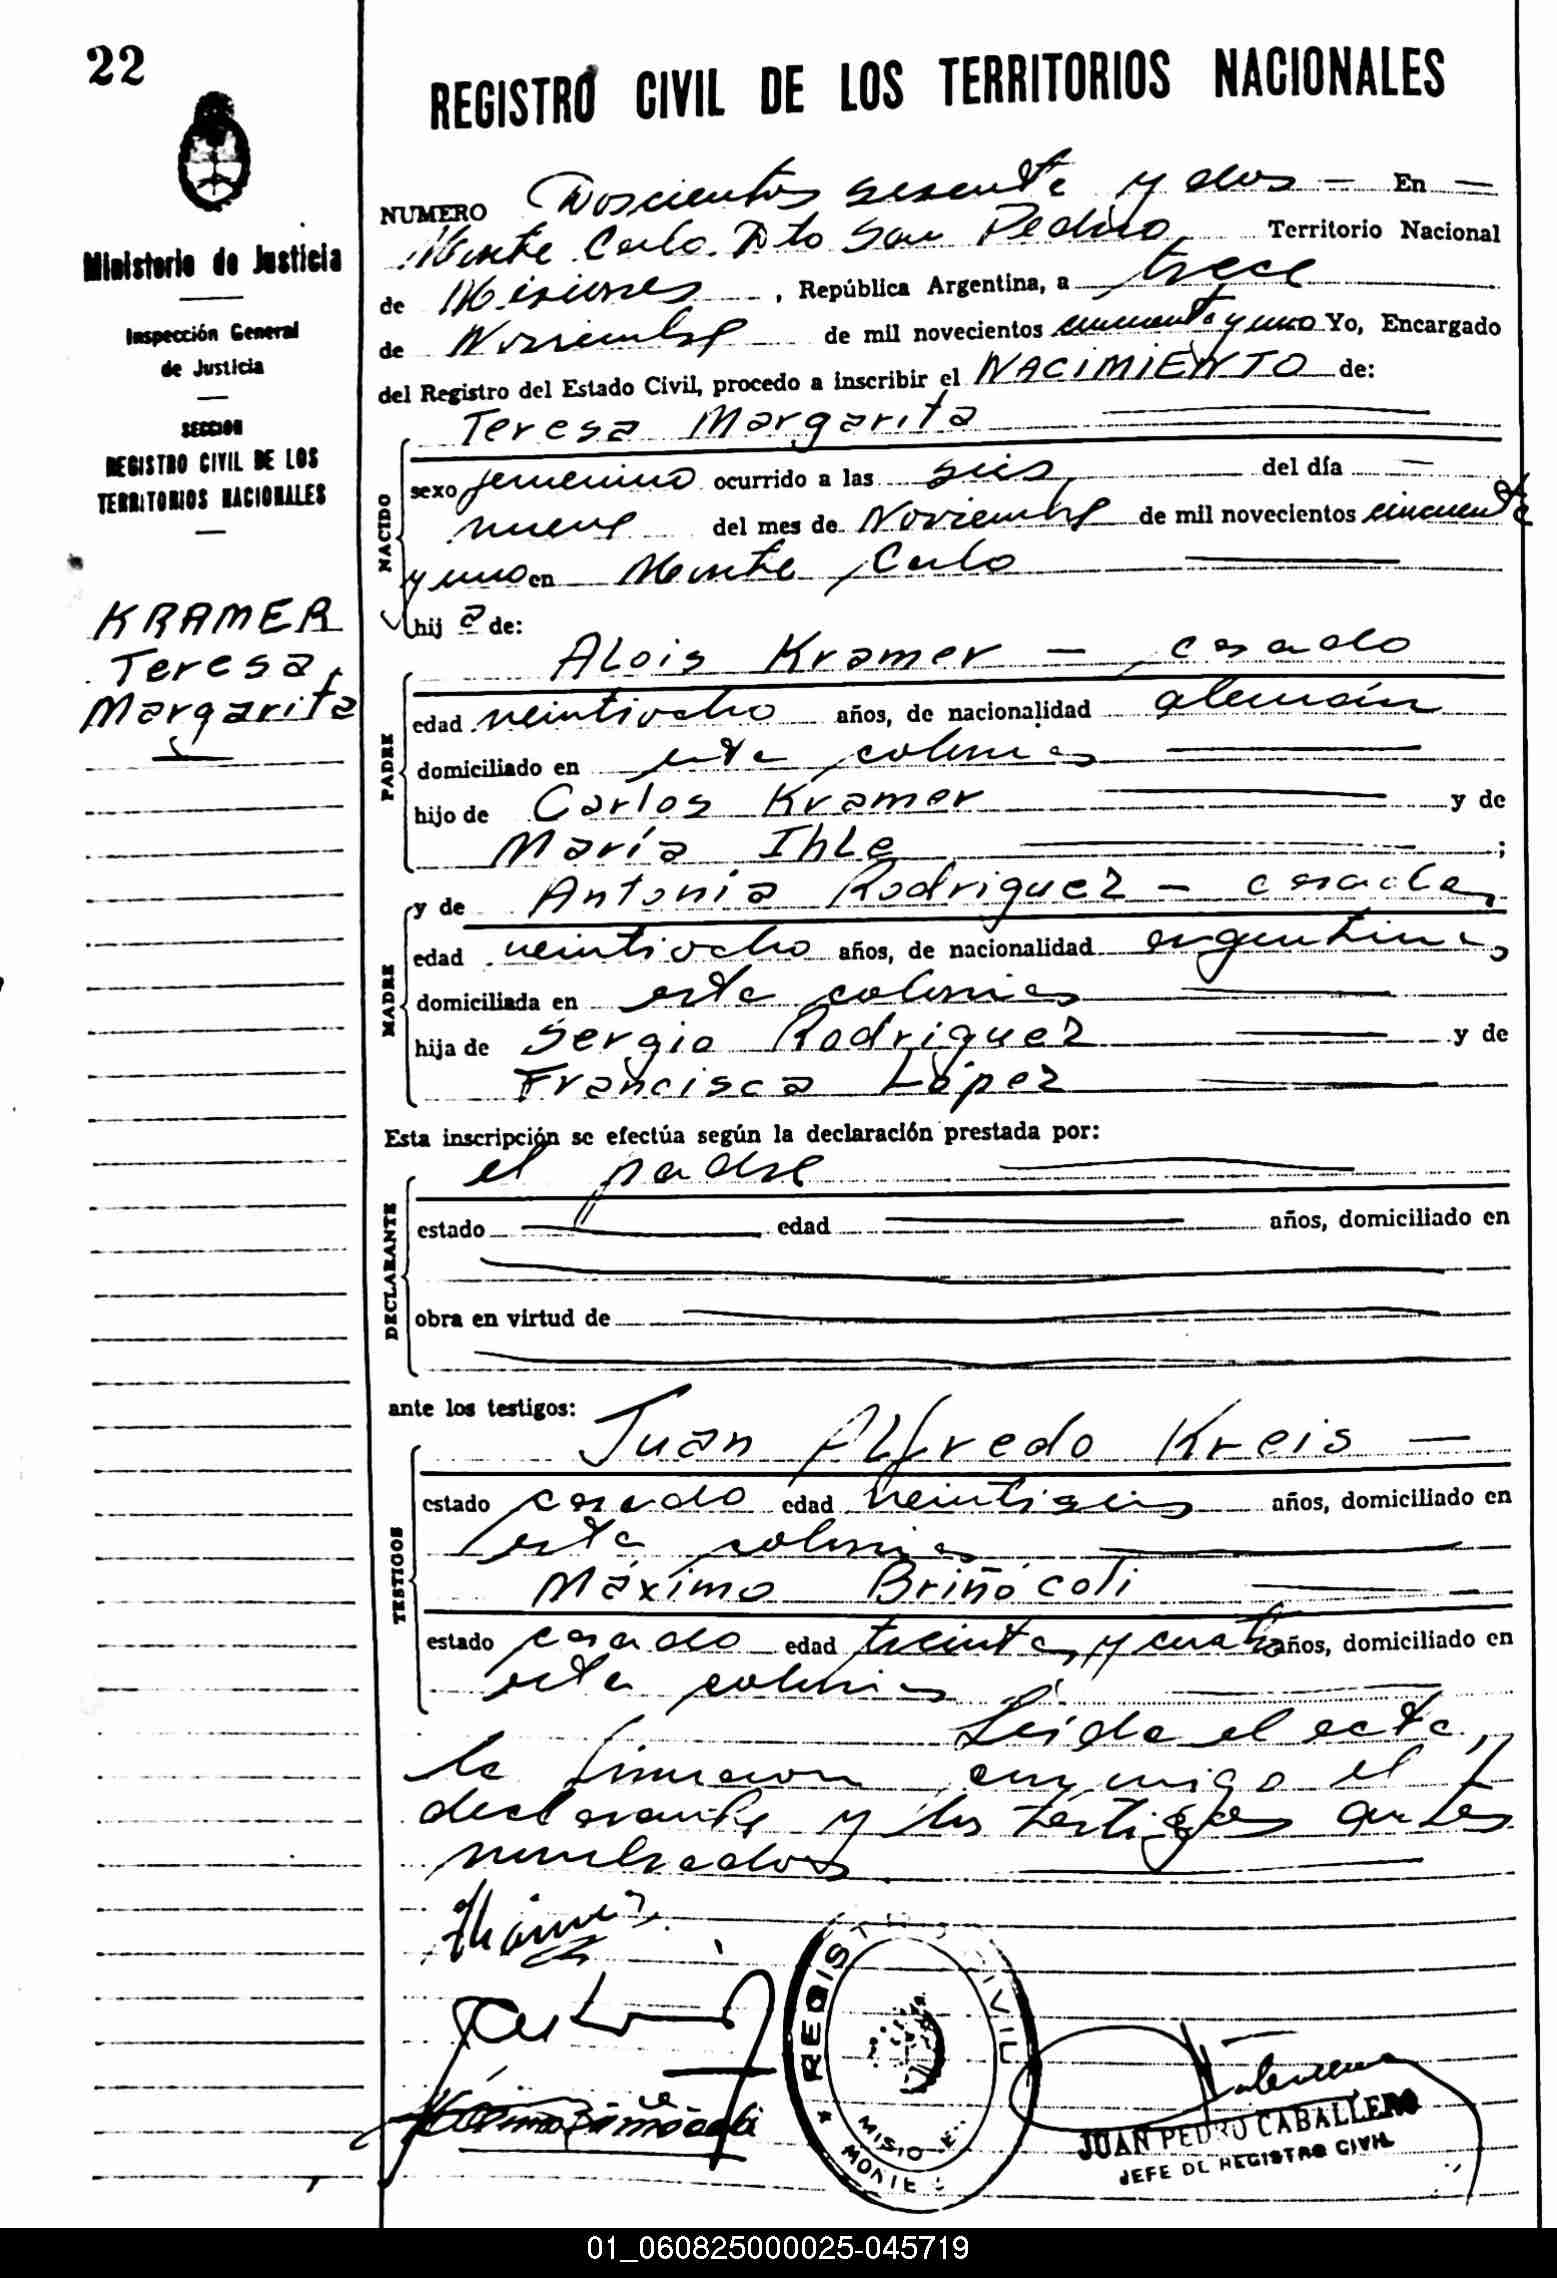 22
REGISTRO CIVIL DE LOS TERRITORIOS NACIONALES
Ministerio de Justicia
Inspección General
de Justicia
SECCION
REGISTRO CIVIL DE LOS
TERRITORIOS NACIONALES
KRAMER
Teresa
Margarita
NUMERO Doscientos sesenta y dos - En -
Monte Carlo Dto San Pedro Territorio Nacional
de Misiones, República Argentina, a trece
de Noviembre de mil novecientos cincuenta y uno Yo, Encargado
del Registro del Estado Civil, procedo a inscribir el NACIMIENTO de:
NACIDO
Teresa Margarita
sexo femenino ocurrido a las seis del día -
nueve del mes de Noviembre de mil novecientos cincuenta
y uno en Monte Carlo
hij a de:
PADRE
Alois Kramer - casado
edad veintiocho años, de nacionalidad alemán
domiciliado en esta colonia
hijo de Carlos Kramer y de
María Ihle ;
MADRE
y de Antonia Rodriguez - casada
edad veintiocho años, de nacionalidad argentina
domiciliada en esta colonia
hija de Sergio Rodriguez y de
Francisca López
Esta inscripción se efectúa según la declaración prestada por:
DECLARANTE
el padre
estado edad años, domiciliado en
obra en virtud de
ante los testigos:
TESTIGOS
Juan Alfredo Kreis -
estado casado edad veintiseis años, domiciliado en
esta colonia
Máximo Briñócoli
estado casado edad treinta y cuatro años, domiciliado en
esta colonia
Leída el acta,
la firmaron conmigo el
declarante y los testigos antes
nombrados
REGISTRO CIVIL
MISIONES
MONTE
JUAN PEDRO CABALLERO
JEFE DE REGISTRO CIVIL
01_060825000025-045719